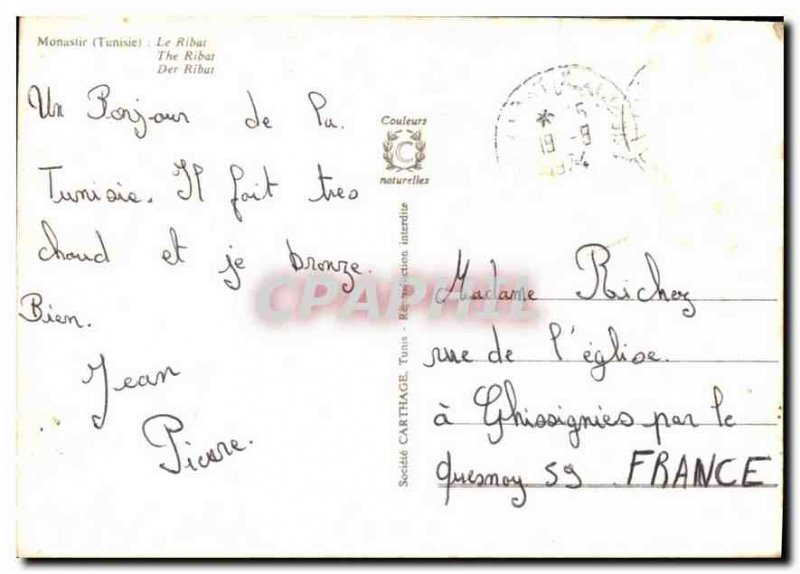 Monastir (Tunisie) : Le Ribat
The Ribat
Der Ribat
Un Bonjour de la
Tunisie. Il fait tres
chaud et je bronze.
Bien.
Jean
Pierre.
Couleurs
C
naturelles
Société CARTHAGE, Tunis - Reproduction interdite
CPAPHIL
19 -9
1974
Madame Richez
rue de l'église.
à Ghissignies par le
Quesnoy 59 FRANCE